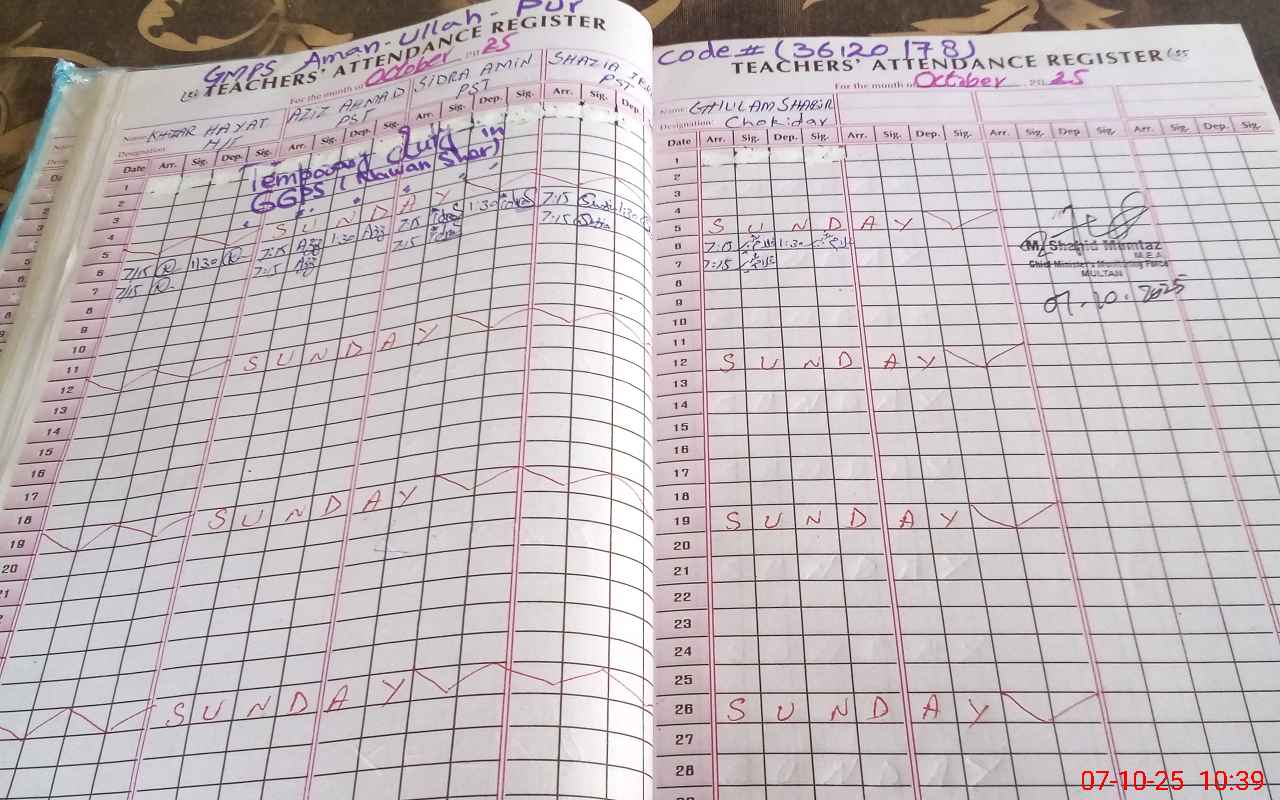 GMPS Aman-Ullah-Pur
TEACHERS' ATTENDANCE REGISTER
For the month of October 25
Name KHIZAR HAYAT AZIZ AHMAD SIDRA AMIN SHAZIA
Designation PST PST PST
Date Arr. Sig. Dep. Sig. Arr. Sig. Dep. Sig. Arr. Sig. Dep. Sig. Arr. Sig. Dep.
Temporary duty in
GGPS (Nawan Shar)
1
2
3
4
5 SUNDAY
6 7:15 11:30 7:15 1:30 7:15 1:30 7:15 1:30
7 7:15 7:15 7:15 7:15
8
9
10
11
12 SUNDAY
13
14
15
16
17
18
19 SUNDAY
20
21
SUNDAY
Code # (36120178)
TEACHERS' ATTENDANCE REGISTER
For the month of October 25
Name GHULAM SHABIR
Designation Chokidar
Date Arr. Sig. Dep. Sig. Arr. Sig. Dep. Sig. Arr. Sig. Dep Sig. Arr. Sig. Dep. Sig.
1
2
3
4
5 SUNDAY
6 7:15 1:30
7 7:15
M. Shahid Mumtaz
M.E.A.
Chief Minister's Monitoring Force
MULTAN
07.10.2025
8
9
10
11
12 SUNDAY
13
14
15
16
17
18
19 SUNDAY
20
21
22
23
24
25
26 SUNDAY
27
28
07-10-25 10:39